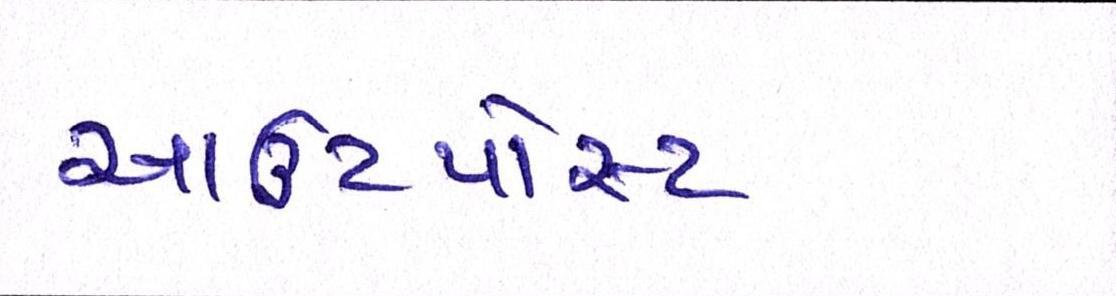 આઉટપોસ્ટ